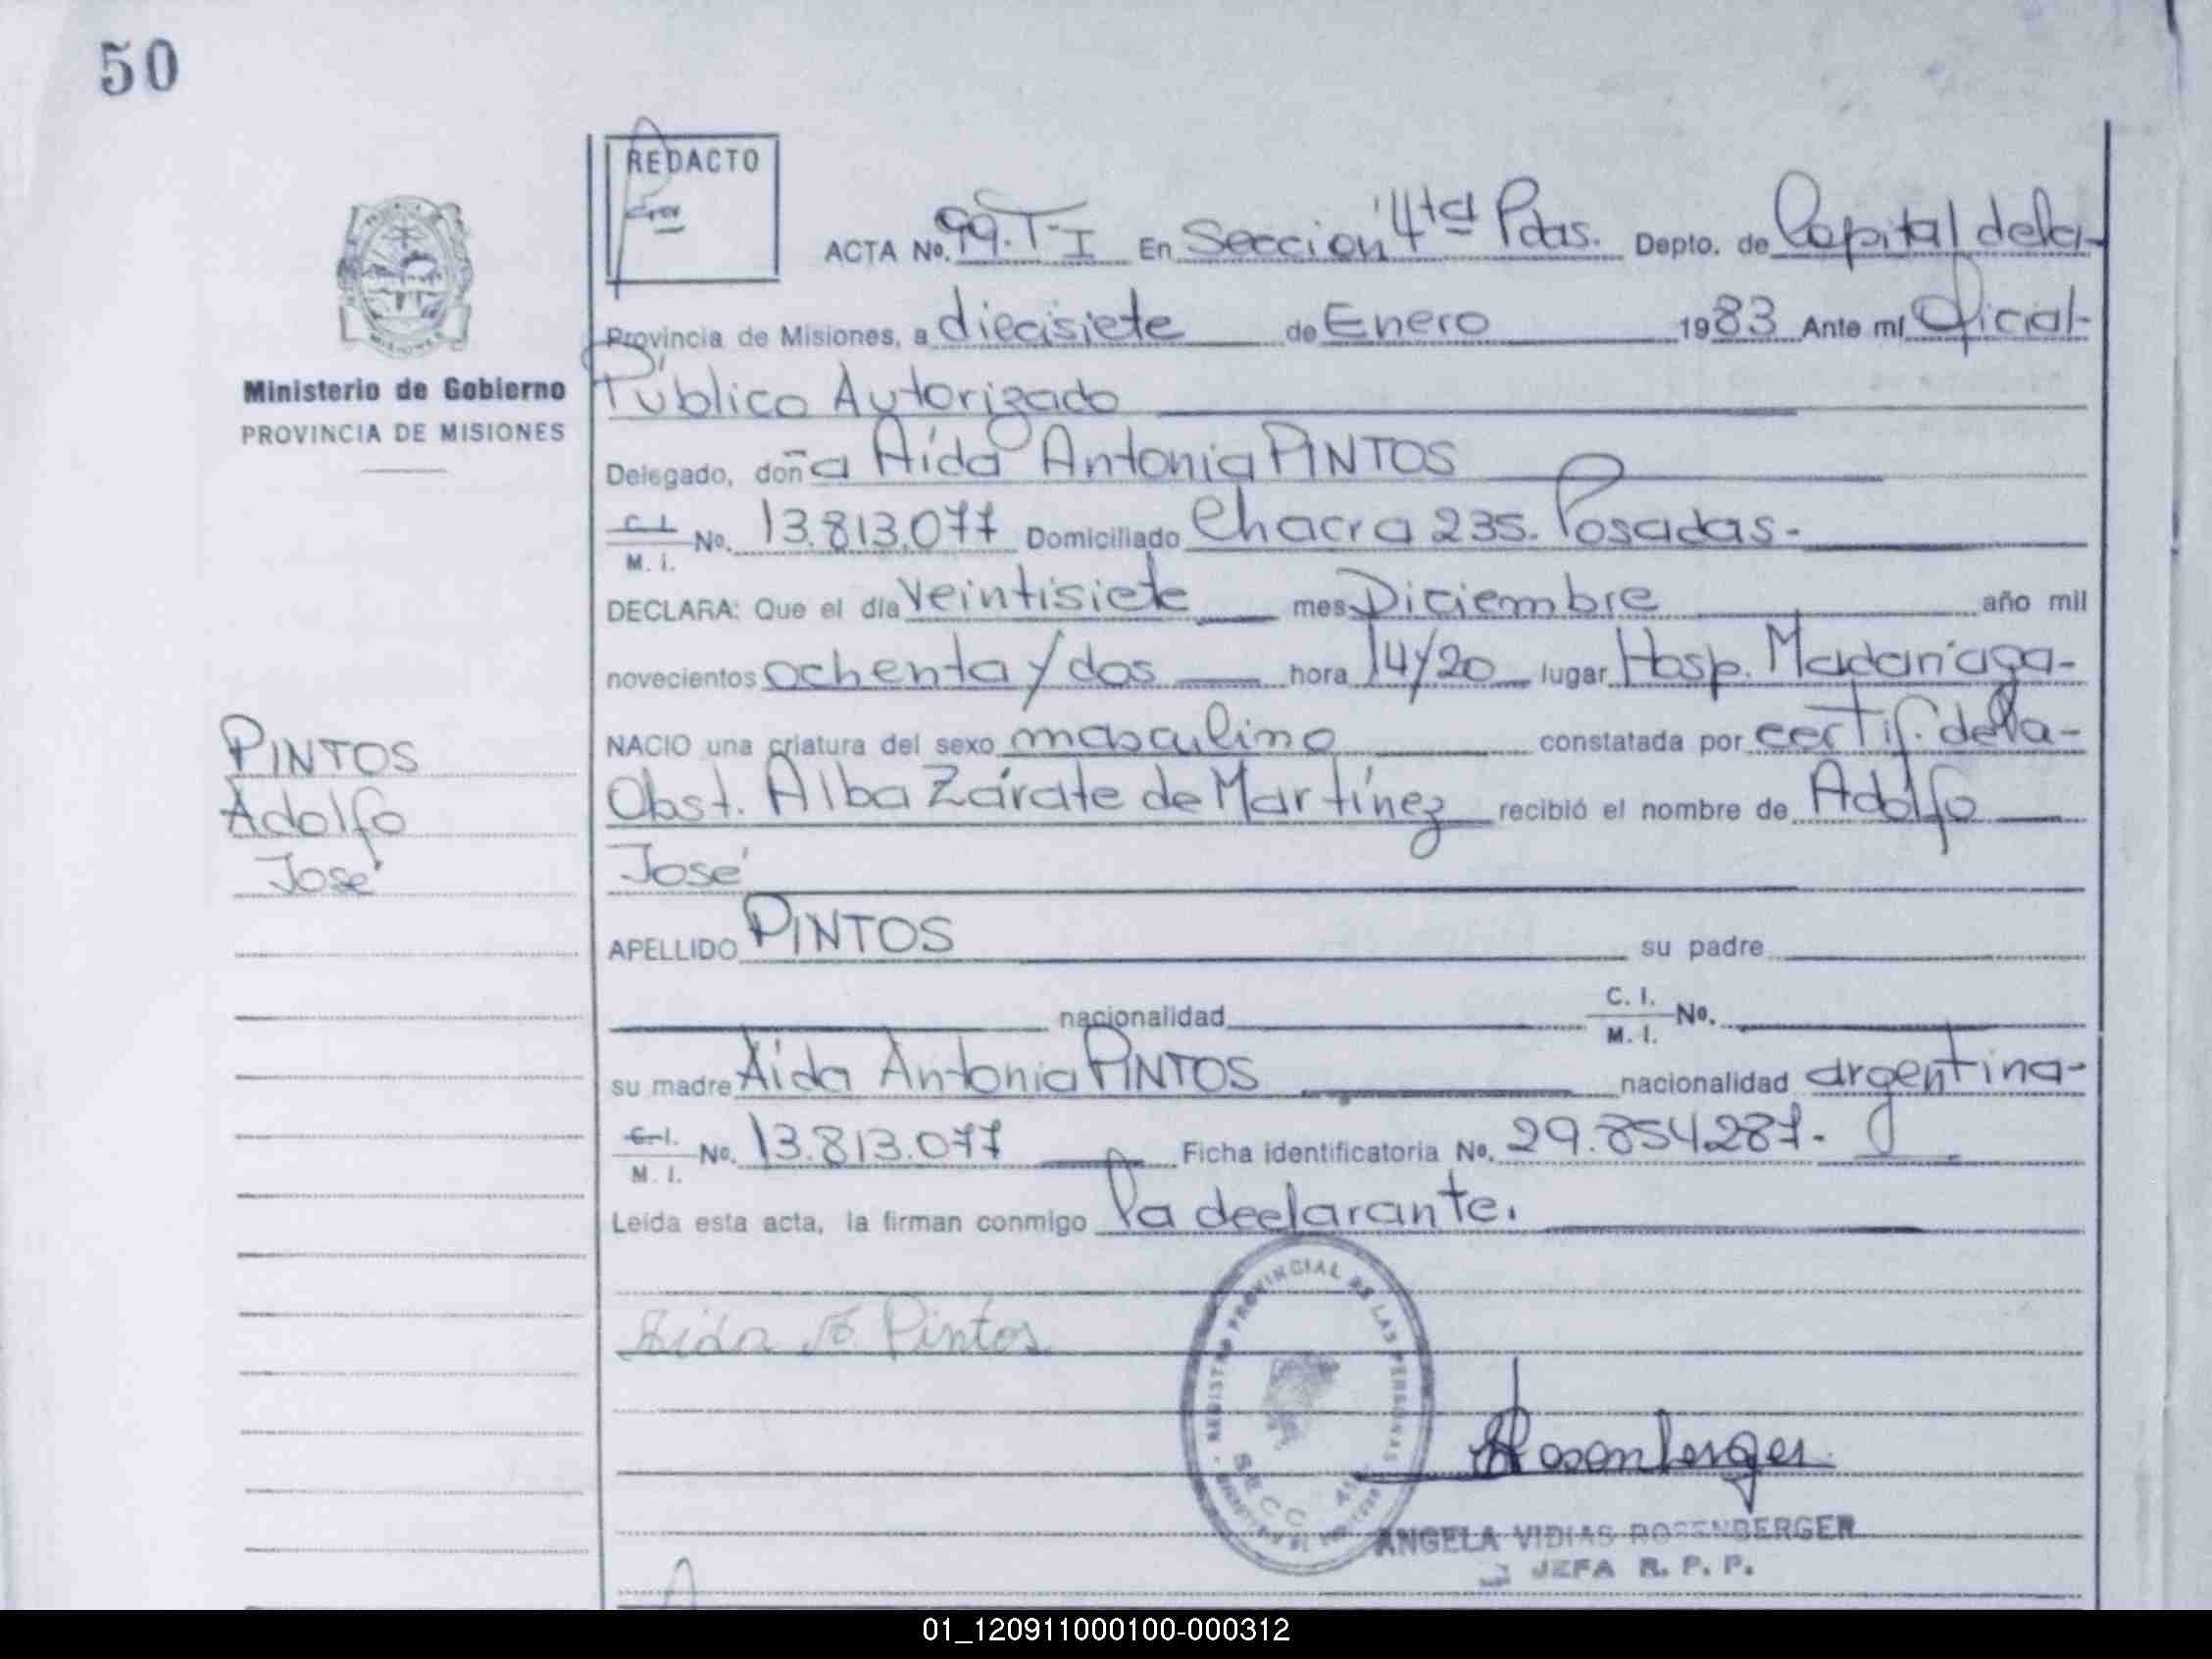 50
REDACTO
ACTA No. 99.T-I En Sección 4ta Pdas. Depto. de Capital de la-
Provincia de Misiones, a diecisiete de Enero 1983 Ante mí Oficial-
Público Autorizado
Delegado, doña Aída Antonia PINTOS
C. I. M. I. No. 13.813.077 Domiciliado Chacra 235. Posadas.-
DECLARA: Que el día Veintisiete mes Diciembre año mil
novecientos ochenta y dos hora 14/20 lugar Hosp. Madariaga-
NACIO una criatura del sexo masculino constatada por certif. de la-
Obst. Alba Zárate de Martínez recibió el nombre de Adolfo
José
APELLIDO PINTOS su padre
nacionalidad C. I. M. I. No.
su madre Aída Antonia PINTOS nacionalidad argentina-
C. I. M. I. No. 13.813.077 Ficha identificatoria No. 29.854.287.-
Leída esta acta, la firman conmigo la declarante.
Aida A. Pintos
Rosenberger
ANGELA VIDIAS ROSENBERGER
JEFA R. P. P.
REGISTRO PROVINCIAL DE LAS PERSONAS
SECC 4ta
Ministerio de Gobierno
PROVINCIA DE MISIONES
PINTOS
Adolfo
José
01_120911000100-000312